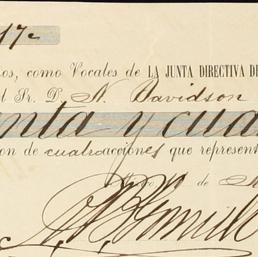 17
ios, como Vocales de LA JUNTA DIRECTIVA DE
el Sr. D. N. Davidson
nta y cua
on de cuatro acciones que represent
de